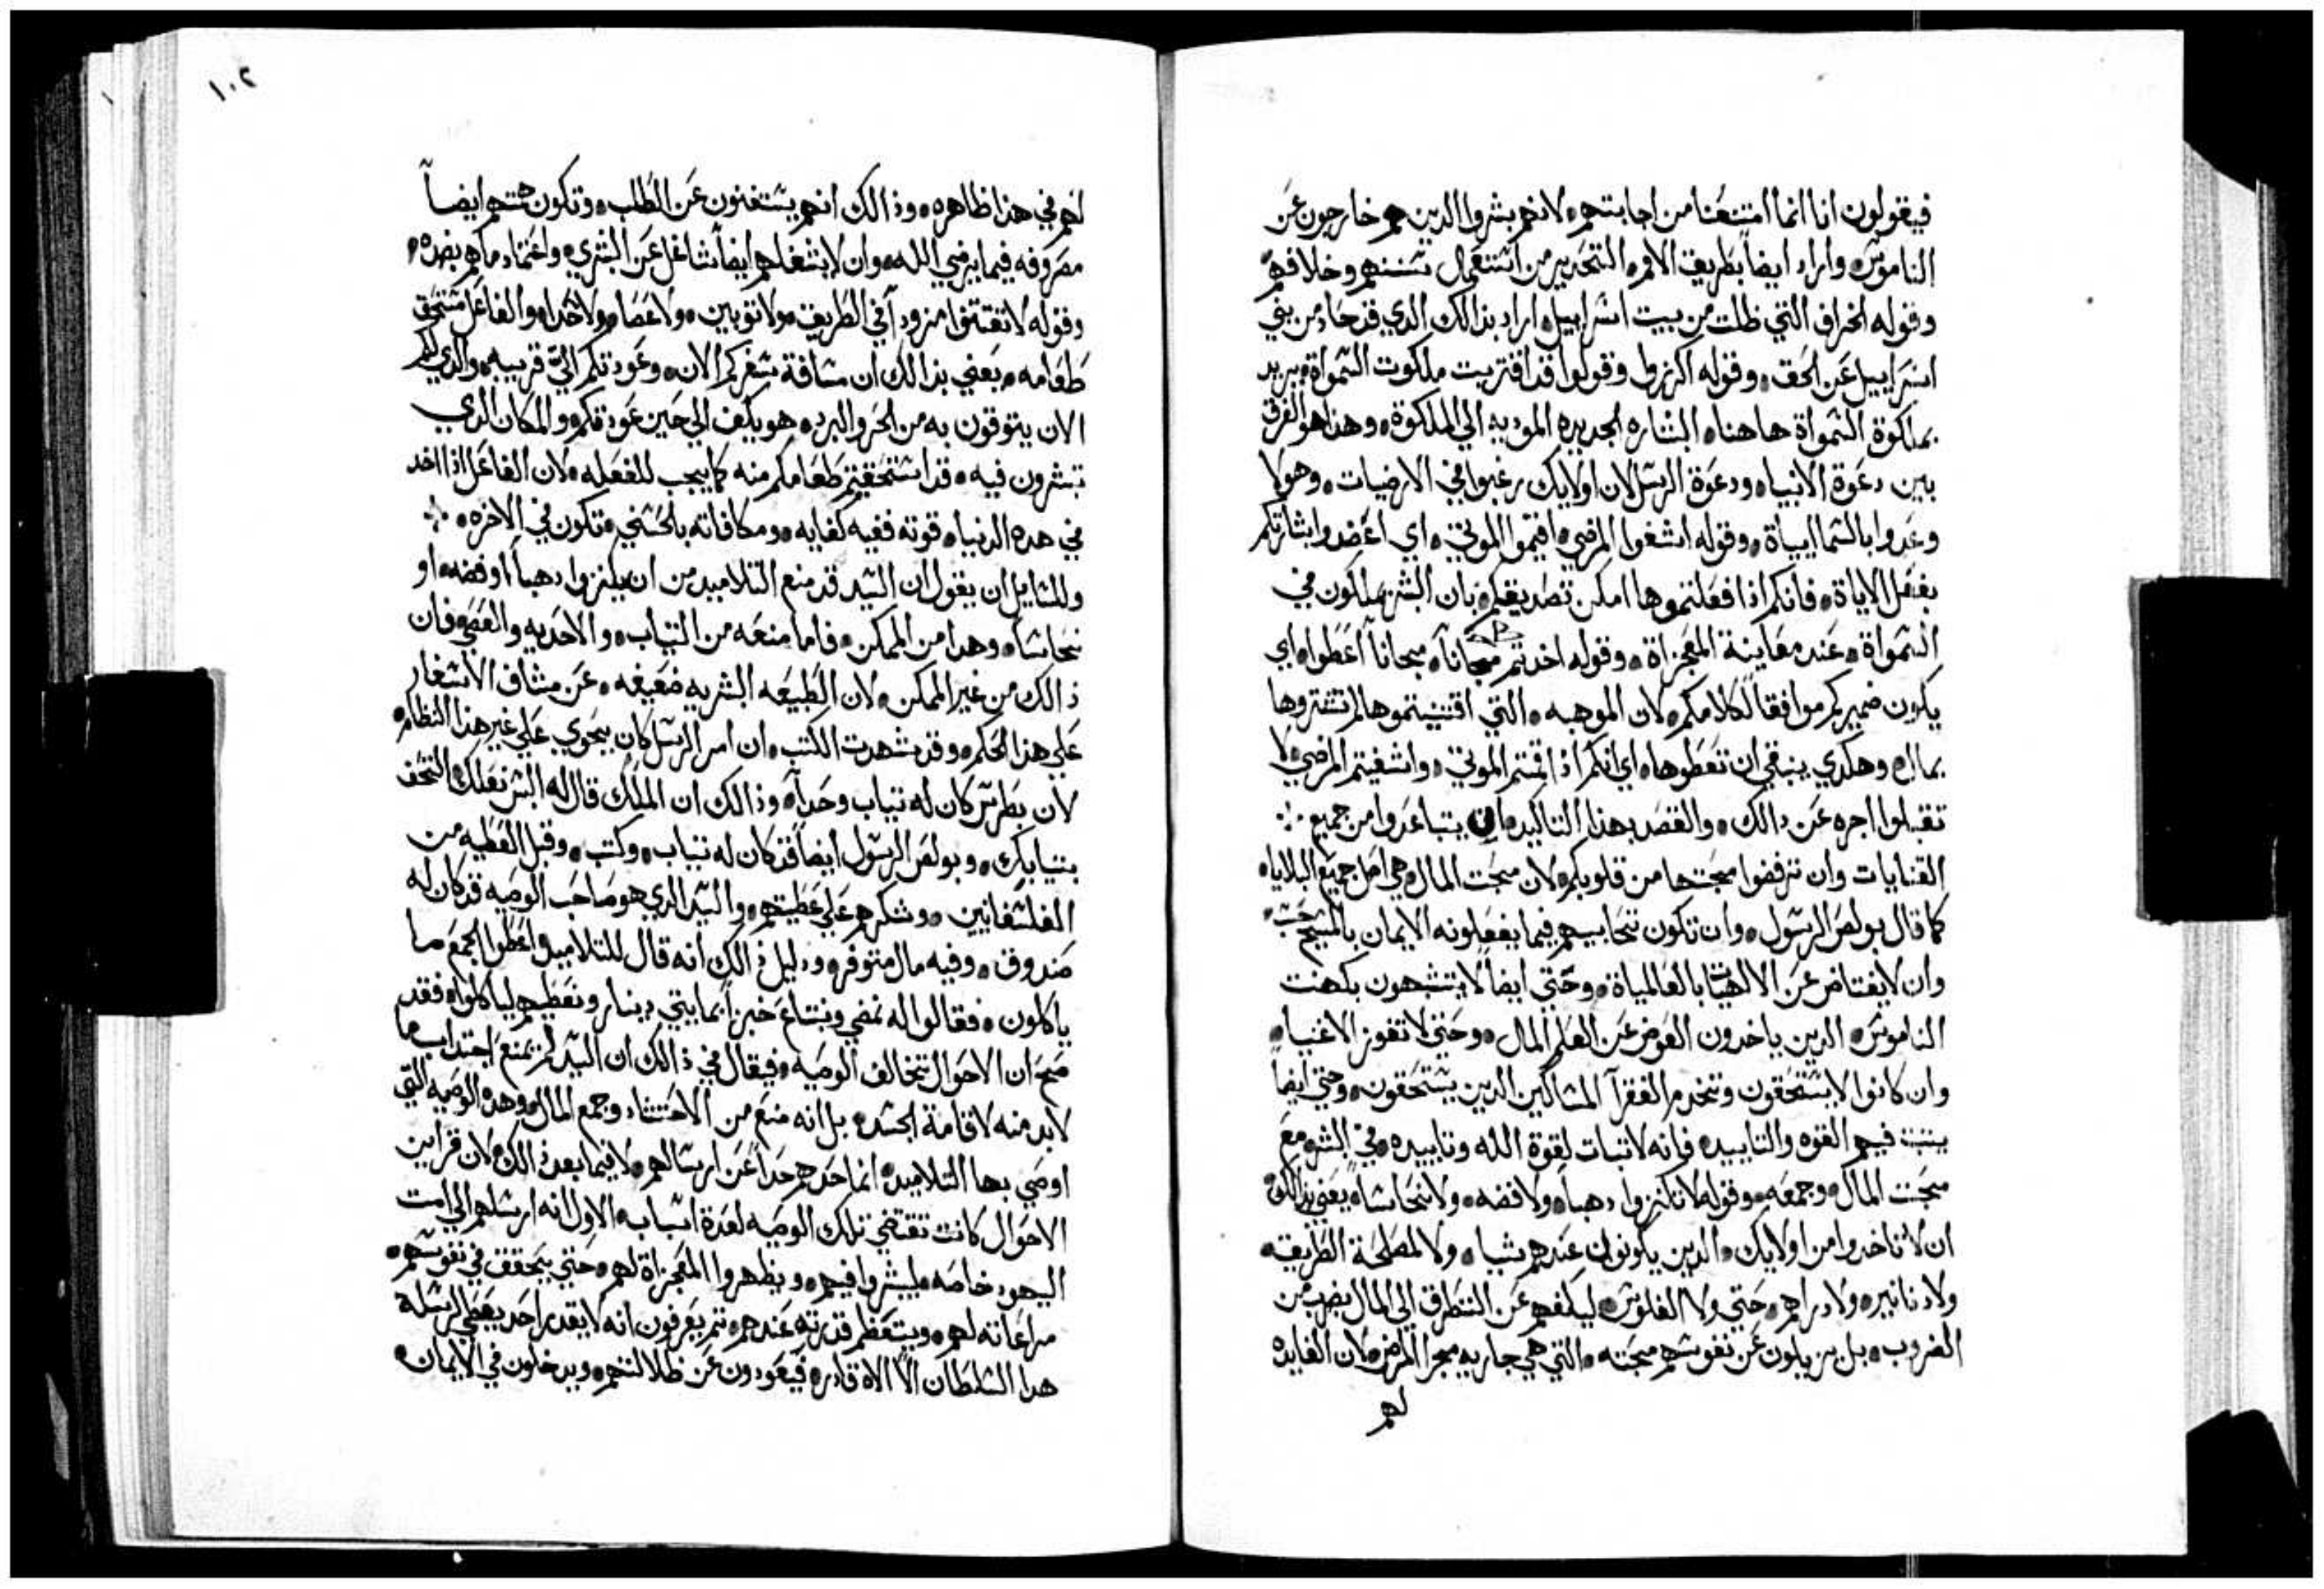 فيقولون انا انما امتنعنا من اجابتهم، لانهم بشروا الدين هم خارجون عن
الناموس، واراد ايضاً بطريق الامر، التحدير من استعمال سننهم وخلافهم،
وقوله الخراف التي ظلت من بيت اسراييل، اراد بذالك الدي قد حاد من بني
اسراييل عن الحق، وقوله اكرزوا وقولوا قد اقتربت ملكوت السمواة، يريد
بملكوة السمواة هاهنا، البشاره الجديده الموديه الي الملكوة، وهذا هو الفرق
بين دعوة الانبيا، ودعوة الرسل لان اولايك رغبوا في الارضيات، وهولا
وعدوا بالسماييياة، وقوله اشفوا المرضي، اقيموا الموتي، اي اعضدوا بشارتكم
بفعل الاياة، فانكم اذا فعلتموها امكن تصديقكم، بان البشر يملكون في
السمواة، عند معاينة المعجزاة، وقوله اخدتم مجاناً، مجاناً اعطوا، اي
يكون ضميركم موافقاً لكلامكم، لان الموهبه، التي اقتنيتموها لم تشتروها
بمال، وهكدي ينبغي ان تعطوها، اي انكم اذ اقمتم الموتي، واشفيتم المرضي، لا
تقبلوا اجره عن دالك، والقصد بهذا التاكيد، ان يتباعدوا من جميع
القنايات وان ترفضوا محبتها من قلوبكم، لان محبت المال، هي اصل جميع البلايا،
كما قال بولص الرسول، وان تكون سحاييهم فيما يفعلونه الايمان بالمسيح حسب،
وان لا يعتاض عن الالهيات بالعالمياة، وحتي ايضاً لا يتشبهون بكهنت
الناموس، الدين ياخدون العوض عن العلم المال، وحتي لا تفوز الاغنيا،
وان كانوا لا يستحقون وتنخدم الفقرآ المساكين الدين يستحقون، وحتي ايضاً
يتبت فيهم القوه والتاييد، فانه لا تبات لقوة الله وتاييده، في الشر مع
محبت المال، وجمعه، وقوله لا تكنزوا دهباً، ولا فضه، ولا نحاساً، يعني بذالك،
ان لا تاخدوا من اولايك، الدين يكونون عندهم شيا، ولا لمصلحة الطريق،
ولا دنانير، ولا دراهم، حتي ولا الفلوس، ليكفهم عن التطرق الي المال بضرب من
الضروب، بل يزيلون عن نفوسهم محبته، التي هي جاريه مجرا المرض، لان الفايده
لهم
١٠٢
لهم في هذا ظاهره، وذالك انهم يستغنون عن الطلب، وتكون همتهم ايضاً
مصروفه فيما يرضي الله، وان لا يشغلهم ايضاً شاغل عن البشري، واعتماد ما هم بصدده،
وقوله لا تقتنوا مزوداً في الطريق، ولا توبين، ولا عصا، ولا حدا، والفاعل مستحق
طعامه، يعني بذالك ان مسافة سفركم الان، وعودتكم اليّ قريبه، والدي لكم
الان يتوقون به من الحر والبرد، هو يكف الي حين عودتكم، والمكان الدي
تبشرون فيه، قد استحقيتم طعامكم منه كما يجب للفعله، لان الفاعل اذا اخد
في هده الدنيا، قوته ففيه كفايه، ومكافاته بالحسني، تكون في الاخره،
وللسايل ان يقول ان السيد قد منع التلاميد من ان يكنزوا دهباً، او فضه، او
نحاساً، وهدا من الممكن، فاما منعه من التياب، والاحديه والعصي، فان
ذالك من غير الممكن، لان الطبيعه البشريه ضعيفه، عن مشاق الاسفار
علي هذا الحكم، وقد شهدت الكتب، ان امر الرسل كان يجوي علي غير هذا النظام،
لان بطرس كان له تياب وحداً، وذالك ان الملاك قال له البس نعلك، التحف
بتيابك، وبولص الرسول ايضاً قد كان له تياب، وكتب، وقبل العطيه من
الفلسفانيين، وشكرهم علي عطيتهم، والسيد الدي هو صاحب الوصيه قد كان له
صندوق، وفيه مال متوفر، ودليل ذالك انه قال للتلاميد اعطوا الجمع ما
ياكلون، فقالوا له نمضي ونبتاع خبزاً بمايتي دينار ونعطيهم لياكلوا، فقد
صح ان الاحوال تتخالف الوصيه، فيقال في ذالك ان السيد لم يمنع اجتداب ما
لابد منه لاقامة الجسد، بل انه منع من الاحتشاد وجمع المال، وهده الوصيه التي
اوصي بها التلاميد، انما حدهم حداً عن ارسالهم، لا فيما بعد ذالك، لان قراين
الاحوال كانت تقتضي تلك الوصيه لعدة اسباب، الاول انه ارسلهم الي امت
اليهود خاصه، ليبشروا فيهم، ويظهروا المعجزاة لهم، حتي يتحقق في نفوسهم،
مراعاته لهم، ويتعظم قدرته عندهم، تم يعرفون انه لا يقدر احد يعطي الرسله
هدا السلطان الّا الاه قادر، فيعودون عن ظلالتهم، ويدخلون في الايمان،